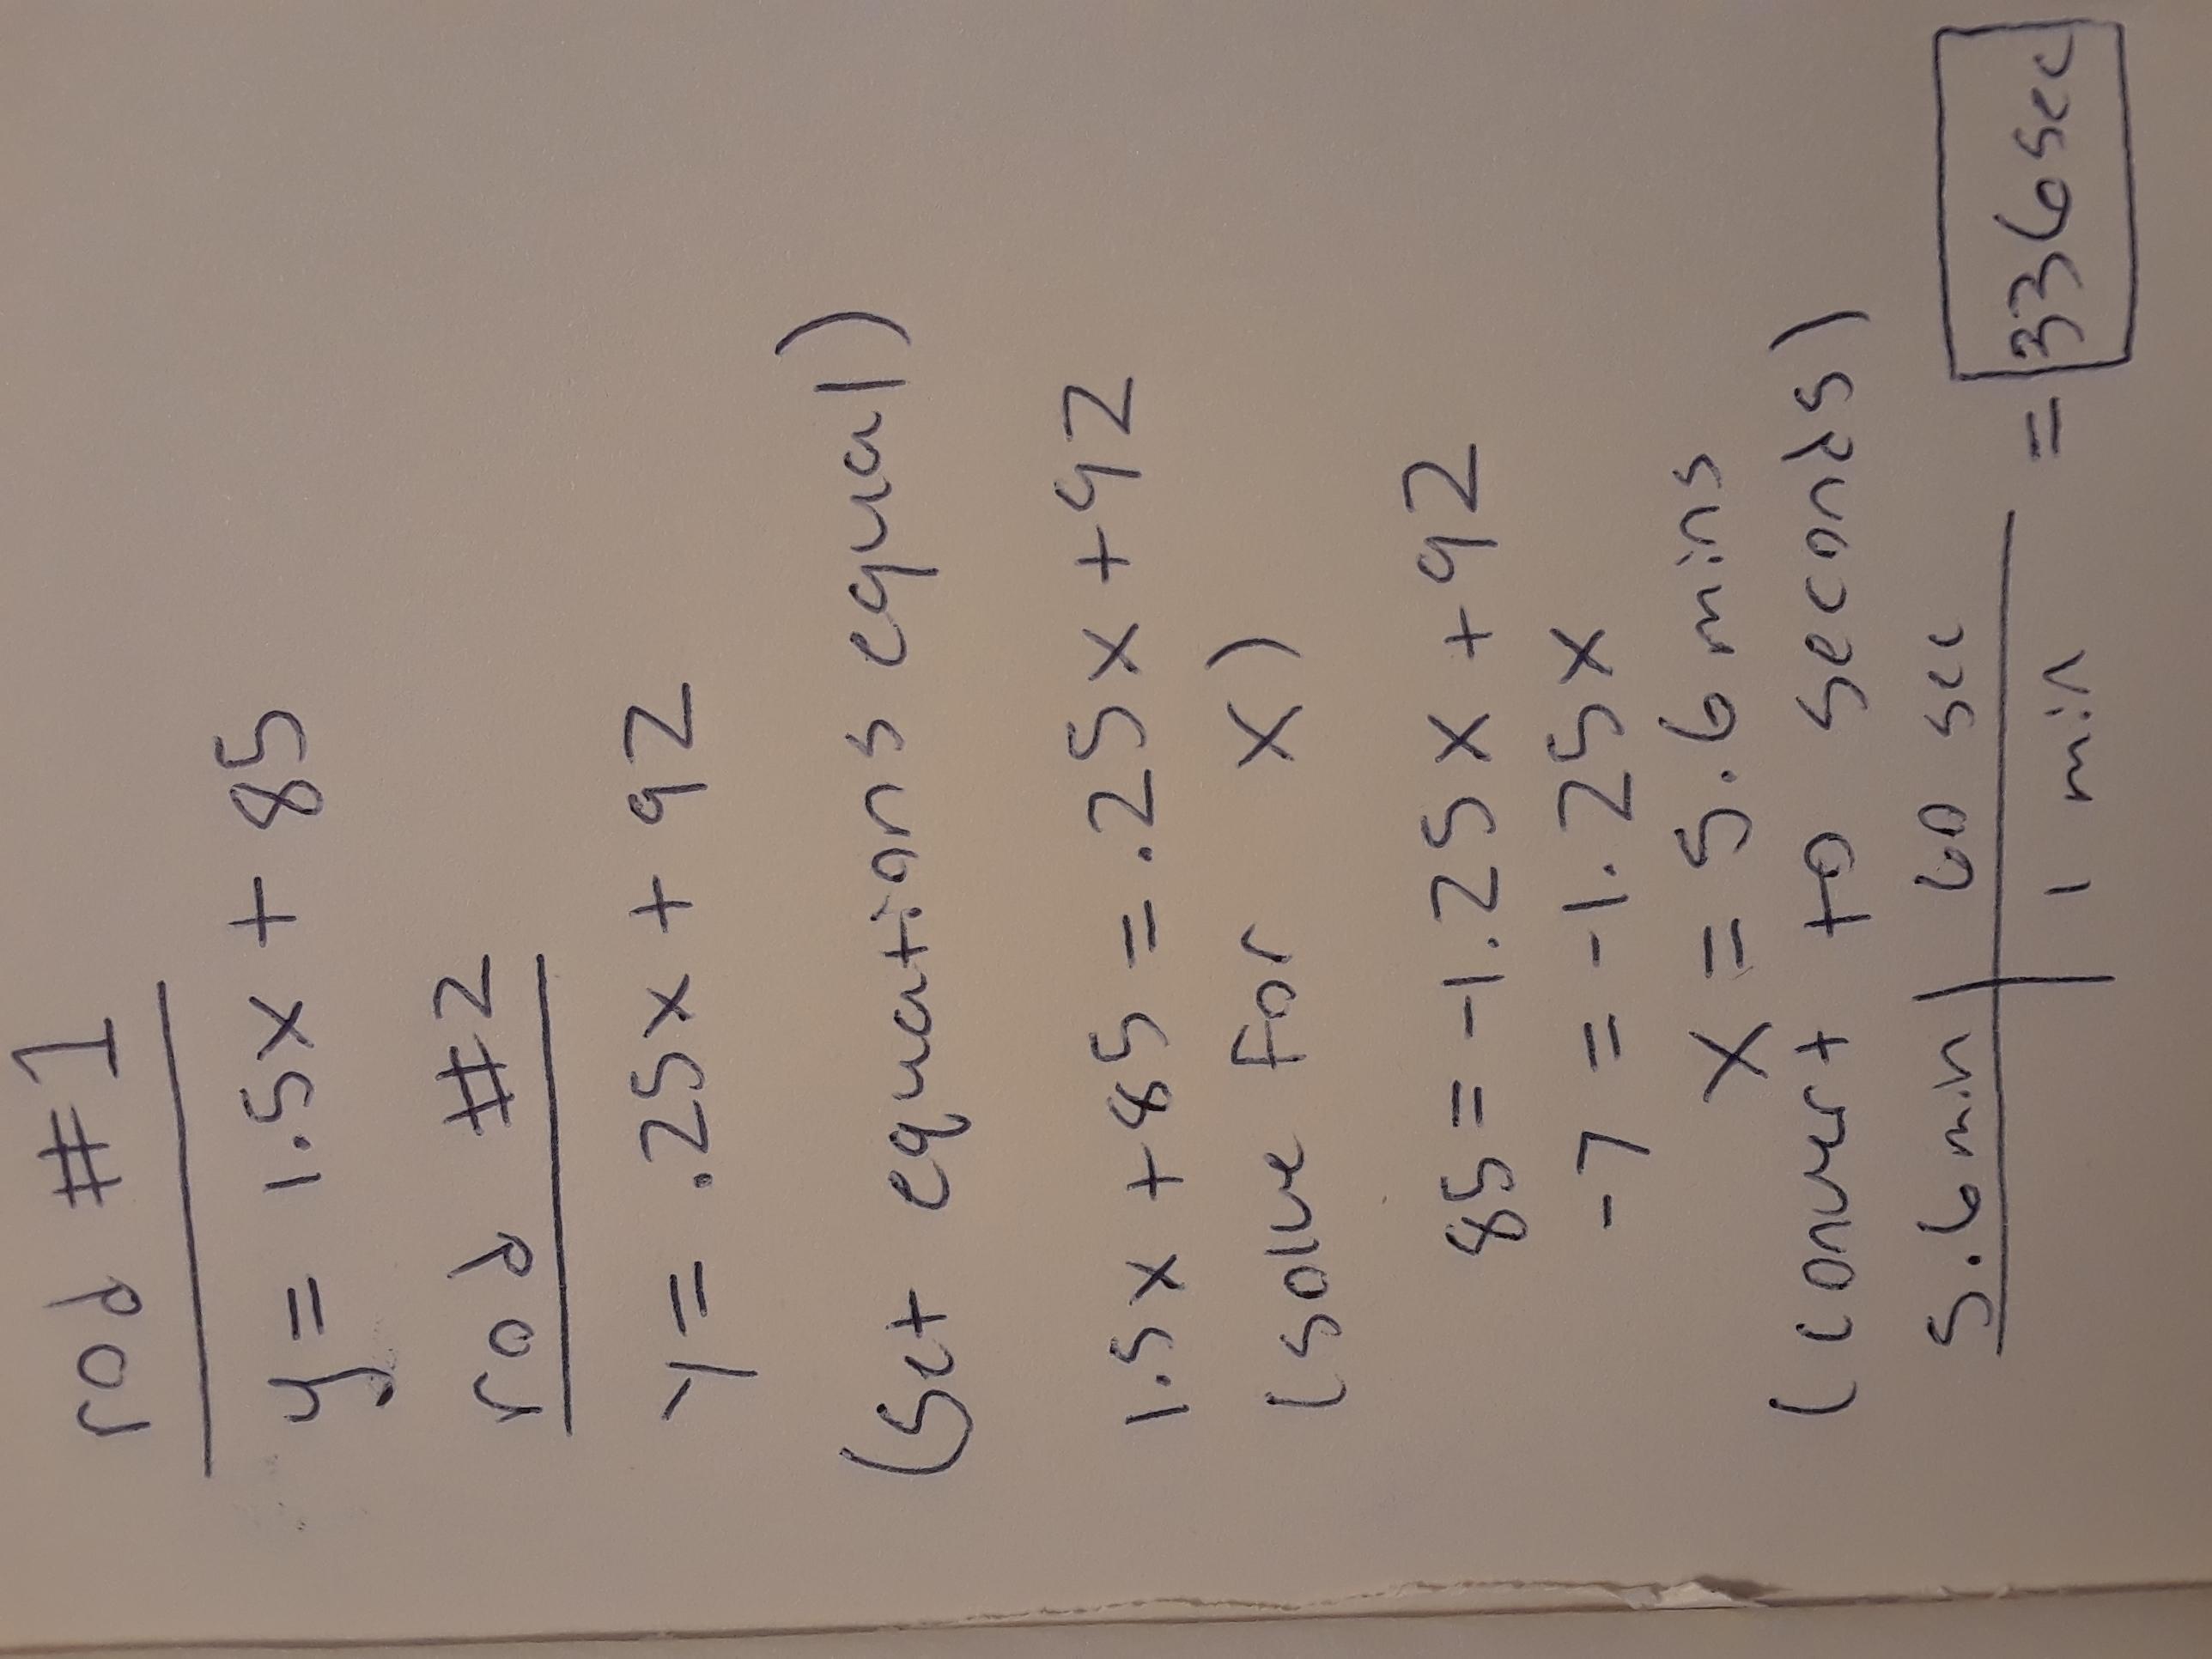 rod #1
y = 1.5x + 85
rod #2
y = .25x + 92
(set equations equal)
1.5x + 85 = .25x + 92
(solve for x)
85 = -1.25x + 92
-7 = -1.25x
x = 5.6 mins
(convert to seconds)
5.6 min | 60 sec
1 min = 336 sec